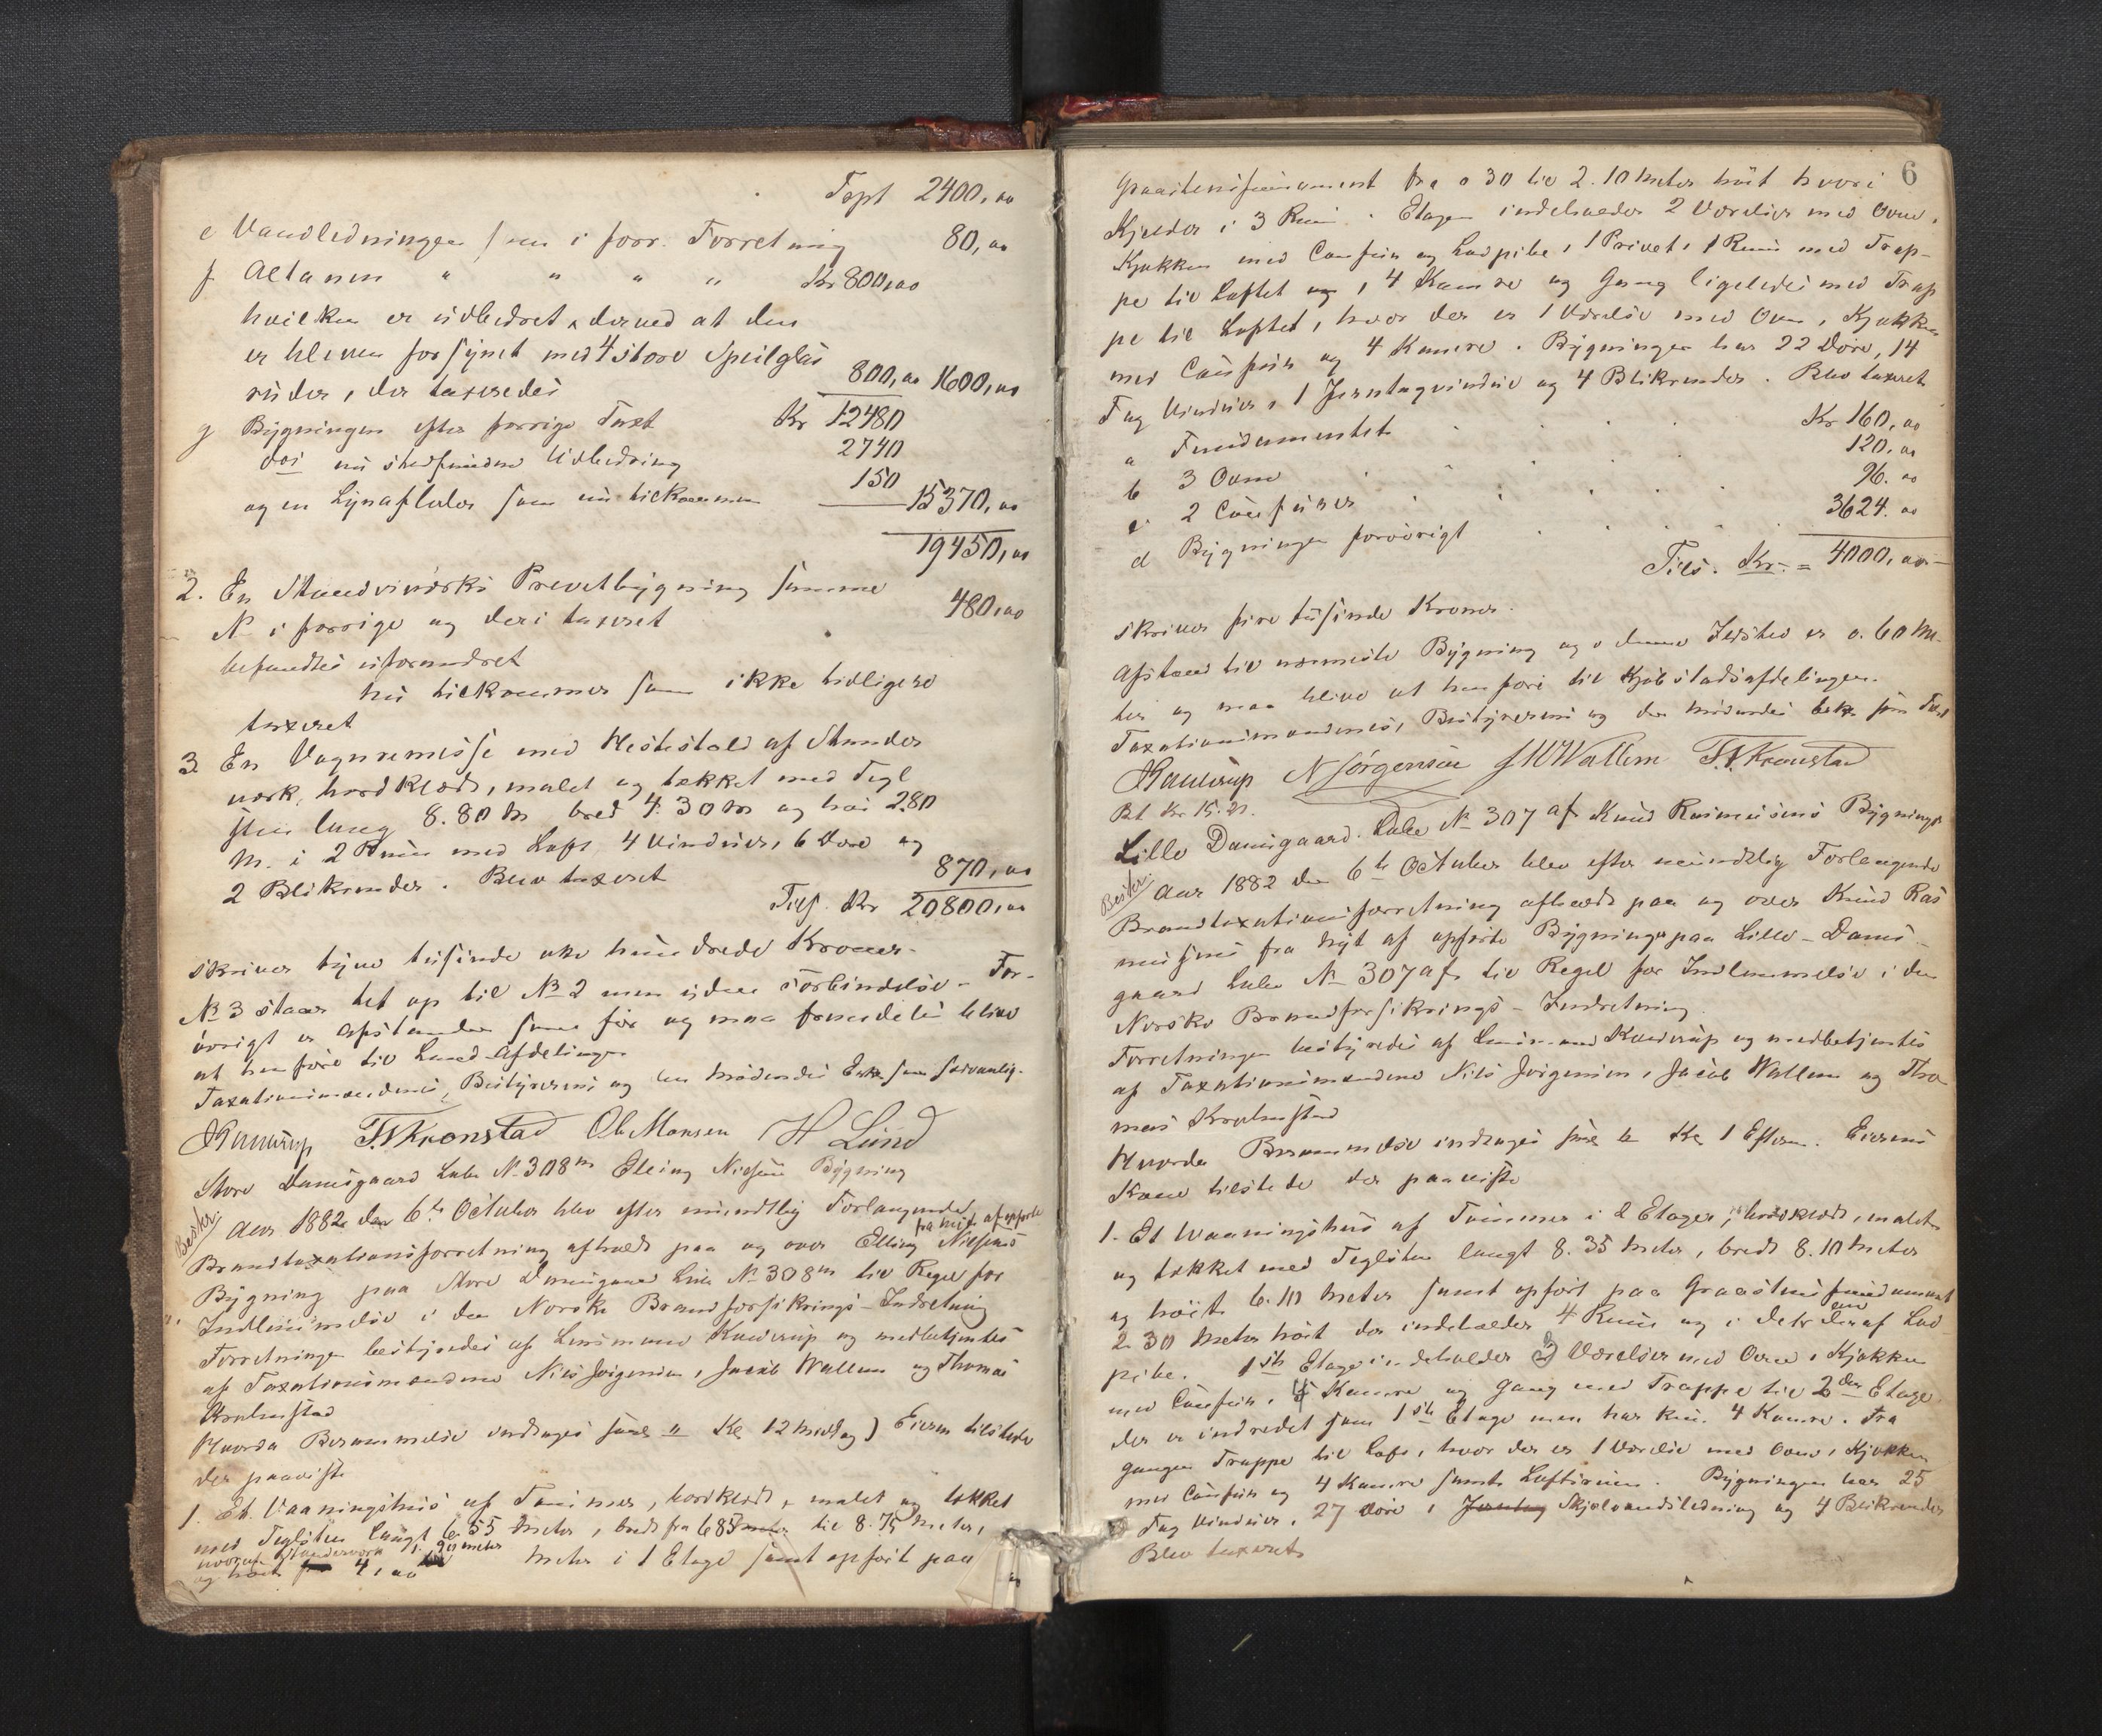 Trspt 2400,00
e Vandledningen som i forr. Forretning 80,00
f Altanen " " " " Kr 800,00
hvilken er udbedret, derved at den
er bleven forsynet med 4 store Speilglas
ruder, der taxeredes 800,00 1600,00
g Bygningen efter forrige Taxt Kr 12480
nu stedfundne Udbedring 2740
og en Lynafleder som nu tilkommer 150 15370,00
19450,00
2. En Standværks Prevetbygning samme
N i forrige og deri taxeret 480,00
befandtes uforandret
Nu tilkommer som ikke tidligere
taxeret
3. En Vognremisse med Hestestald af Stander
værk, bordklædt, malet og tækket med Tegl
sten lang 8.80 M bred 4.30 M og høi 2.80
M. i 2 Rum med Loft, 4 Vinduer, 6 Døre og
2 Blikrender. Blev taxeret 870,00
Tils. Kr 20800,00
skriver tyve tusinde otte hundrede Kroner.
No 3 staar tet op til No 2 men uden Forbindelse. For-
øvrigt er Afstanden som før og maa fremdeles blive
at henføre til Land-Afdelingen
Taxationsmændenes, Bestyrerens og den mødendes som sædvanlig.
Kaurup T. Kronstad Ole Monsen H Lund
Store Damsgaard Lube No 308m Elling Nielsens Bygning
Beskr. Aar 1882 den 6te October blev efter mundtlig Forlangende
fra nyt af opførte
Brandtaxationsforretning afholdt paa og over Elling Nielsens
Bygning paa Store Damsgaard Lube No 308m til Regel for
Indlemmelse i den Norske Brandforsikrings-Indretning
Forretningen bestyredes af Lensmand Kaurup og medbetjentes
af Taxationsmændene Nils Jørgensen, Jacob Wallem og Thomas
Kronstad
Hvorda Berammelse indtages Kl 12 Middag) Eieren tilstede
der paaviste
1. Et Vaaningshus af Tømmer, bordklædt, malet og tækket
med Teglsten langt 6.55 Meter, bredt fra 6.85 til 8.75 Meter,
hvoraf Standerværk 1.90 meter
og høit 4,00 Meter i 1 Etage samt opført paa
6
Graastensfundament fra 0.30 til 2.10 Meter høit hvori
Kjelder i 3 Rum. Etagen indeholder 2 Værelser med Ovne,
Kjøkken med Comfur og Lodpibe, 1 Privet, 1 Rum med Trap-
pe til Loftet og, 4 Kamre og Gang ligeledes med Trap
pe til Loftet, hvor der er 1 Værelse med Ovn, Kjøkken
med Comfur og 4 Kamre. Bygningen har 22 Døre, 14
Fag Vinduer, 1 Jerntagvindue og 4 Blikrender. Blev taxeret
a Fundamentet Kr 160,00
b 3 Ovne 120,00
c 2 Comfurer 96.00
d Bygningen forøvrigt 3624.00
Tils. Kr. = 4000,00
skriver fire tusinde Kroner.
Afstand til nærmeste Bygning og denne Ildsted er 0.60 Me-
ter og maa blive at henføre til Kjøbstadsafdelingen.
Taxationsmændenes, Bestyrerens og den mødendes som
Kaurup N Jørgensen J W Wallem T. Kronstad
Bt Kr 15.21.
Lille Damsgaard Lube No 307af Knud Rasmusens Bygning
Beskr. Aar 1882 den 6te October blev efter mundtlig Forlangende
Brandtaxationsforretning afholdt paa og over Knud Ras
musens fra Nyt af opførte Bygning paa Lille-Dams-
gaard Lube No 307af til Regel for Indlemmelse i den
Norske Brandforsikrings-Indretning
Forretningen bestyredes af Lensmand Kaurup og medbetjentes
af Taxationsmændene Nils Jørgensen, Jacob Wallem og Tho-
mas Kronstad
Hvorda Berammelse indtages Kl 1 Efterm. Eierens
Kone tilstede der paaviste
1. Et Vaaningshus af Tømmer i 2 Etager, bordklædt, malet
og tækket med Teglsten langt 8.35 Meter, bredt 8.10 Meter
og høit 6.10 Meter samt opført paa Graastensfundament
2.30 Meter høit der indeholder 4 Rum og i det en af Lod
pibe. 1ste Etage indeholder 2 Værelser med Ovne, Kjøkken
med Comfur, 4 Kamre og Gang med Trappe til 2den Etage
der er indredet som 1ste Etage men har kun 4 Kamre. Fra
gangen Trappe til Loft, hvor der er 1 Værelse med Ovn, Kjøkken
med Comfur og 4 Kamre samt Loftsrum. Bygningen har 25
Fag Vinduer, 27 Døre, Skjolvandsledning og 4 Blikrender
Blev taxeret